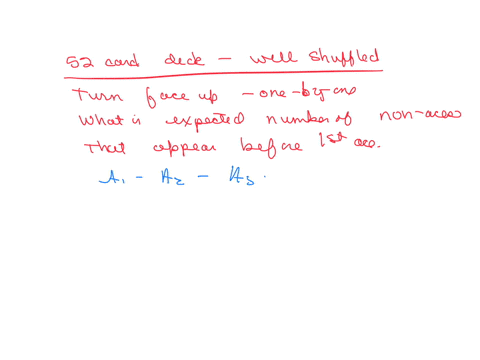 52 card deck - well shuffled
Turn face up - one-by one
What is expected number of non-aces
That appear before 1st ace.
A1 - A2 - A3 .